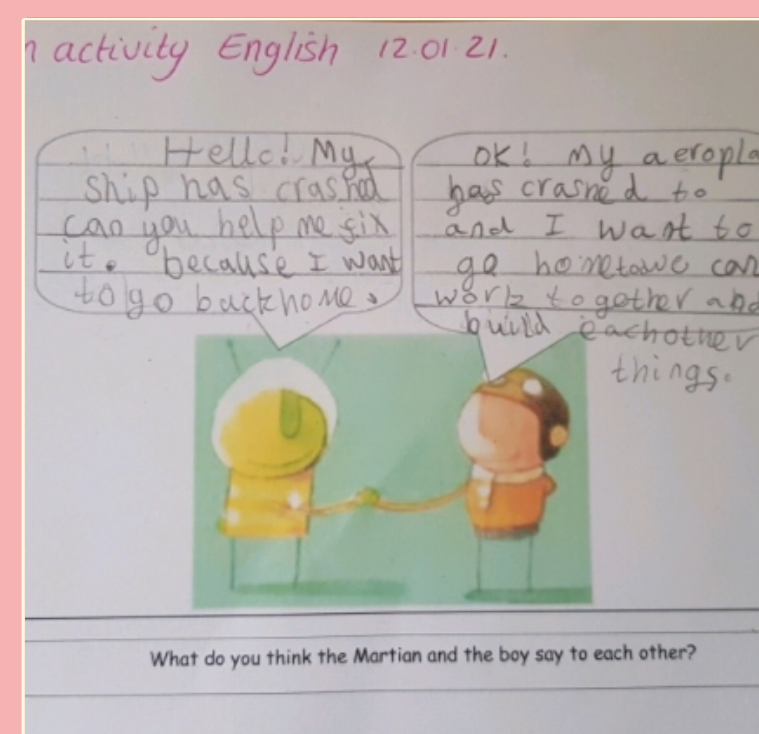 n activity English 12.01.21.
Hello! My
ship has crashed
can you help me fix
it. because I want
to go back home.
OK! my aeropla
has crashed to
and I want to
go home towe can
work together and
build eachother
things.
What do you think the Martian and the boy say to each other?